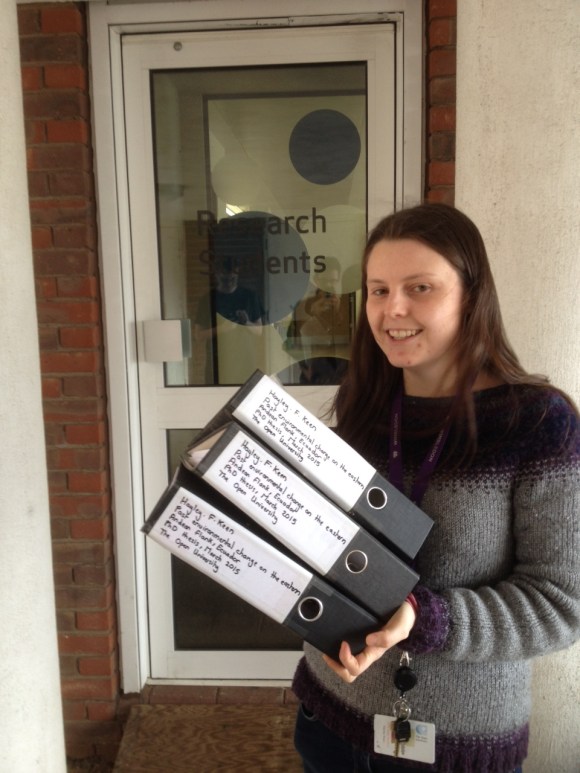 Research
Students
Hayley. F. Keen
Past environmental change on the eastern
Andean Flank, Ecuador
PhD thesis, March 2015
The Open University
Hayley. F. Keen
Past environmental change on the eastern
Andean Flank, Ecuador
PhD thesis, March 2015
The Open University
Hayley. F. Keen
Past environmental change on the eastern
Andean Flank, Ecuador
PhD thesis, March 2015
The Open University